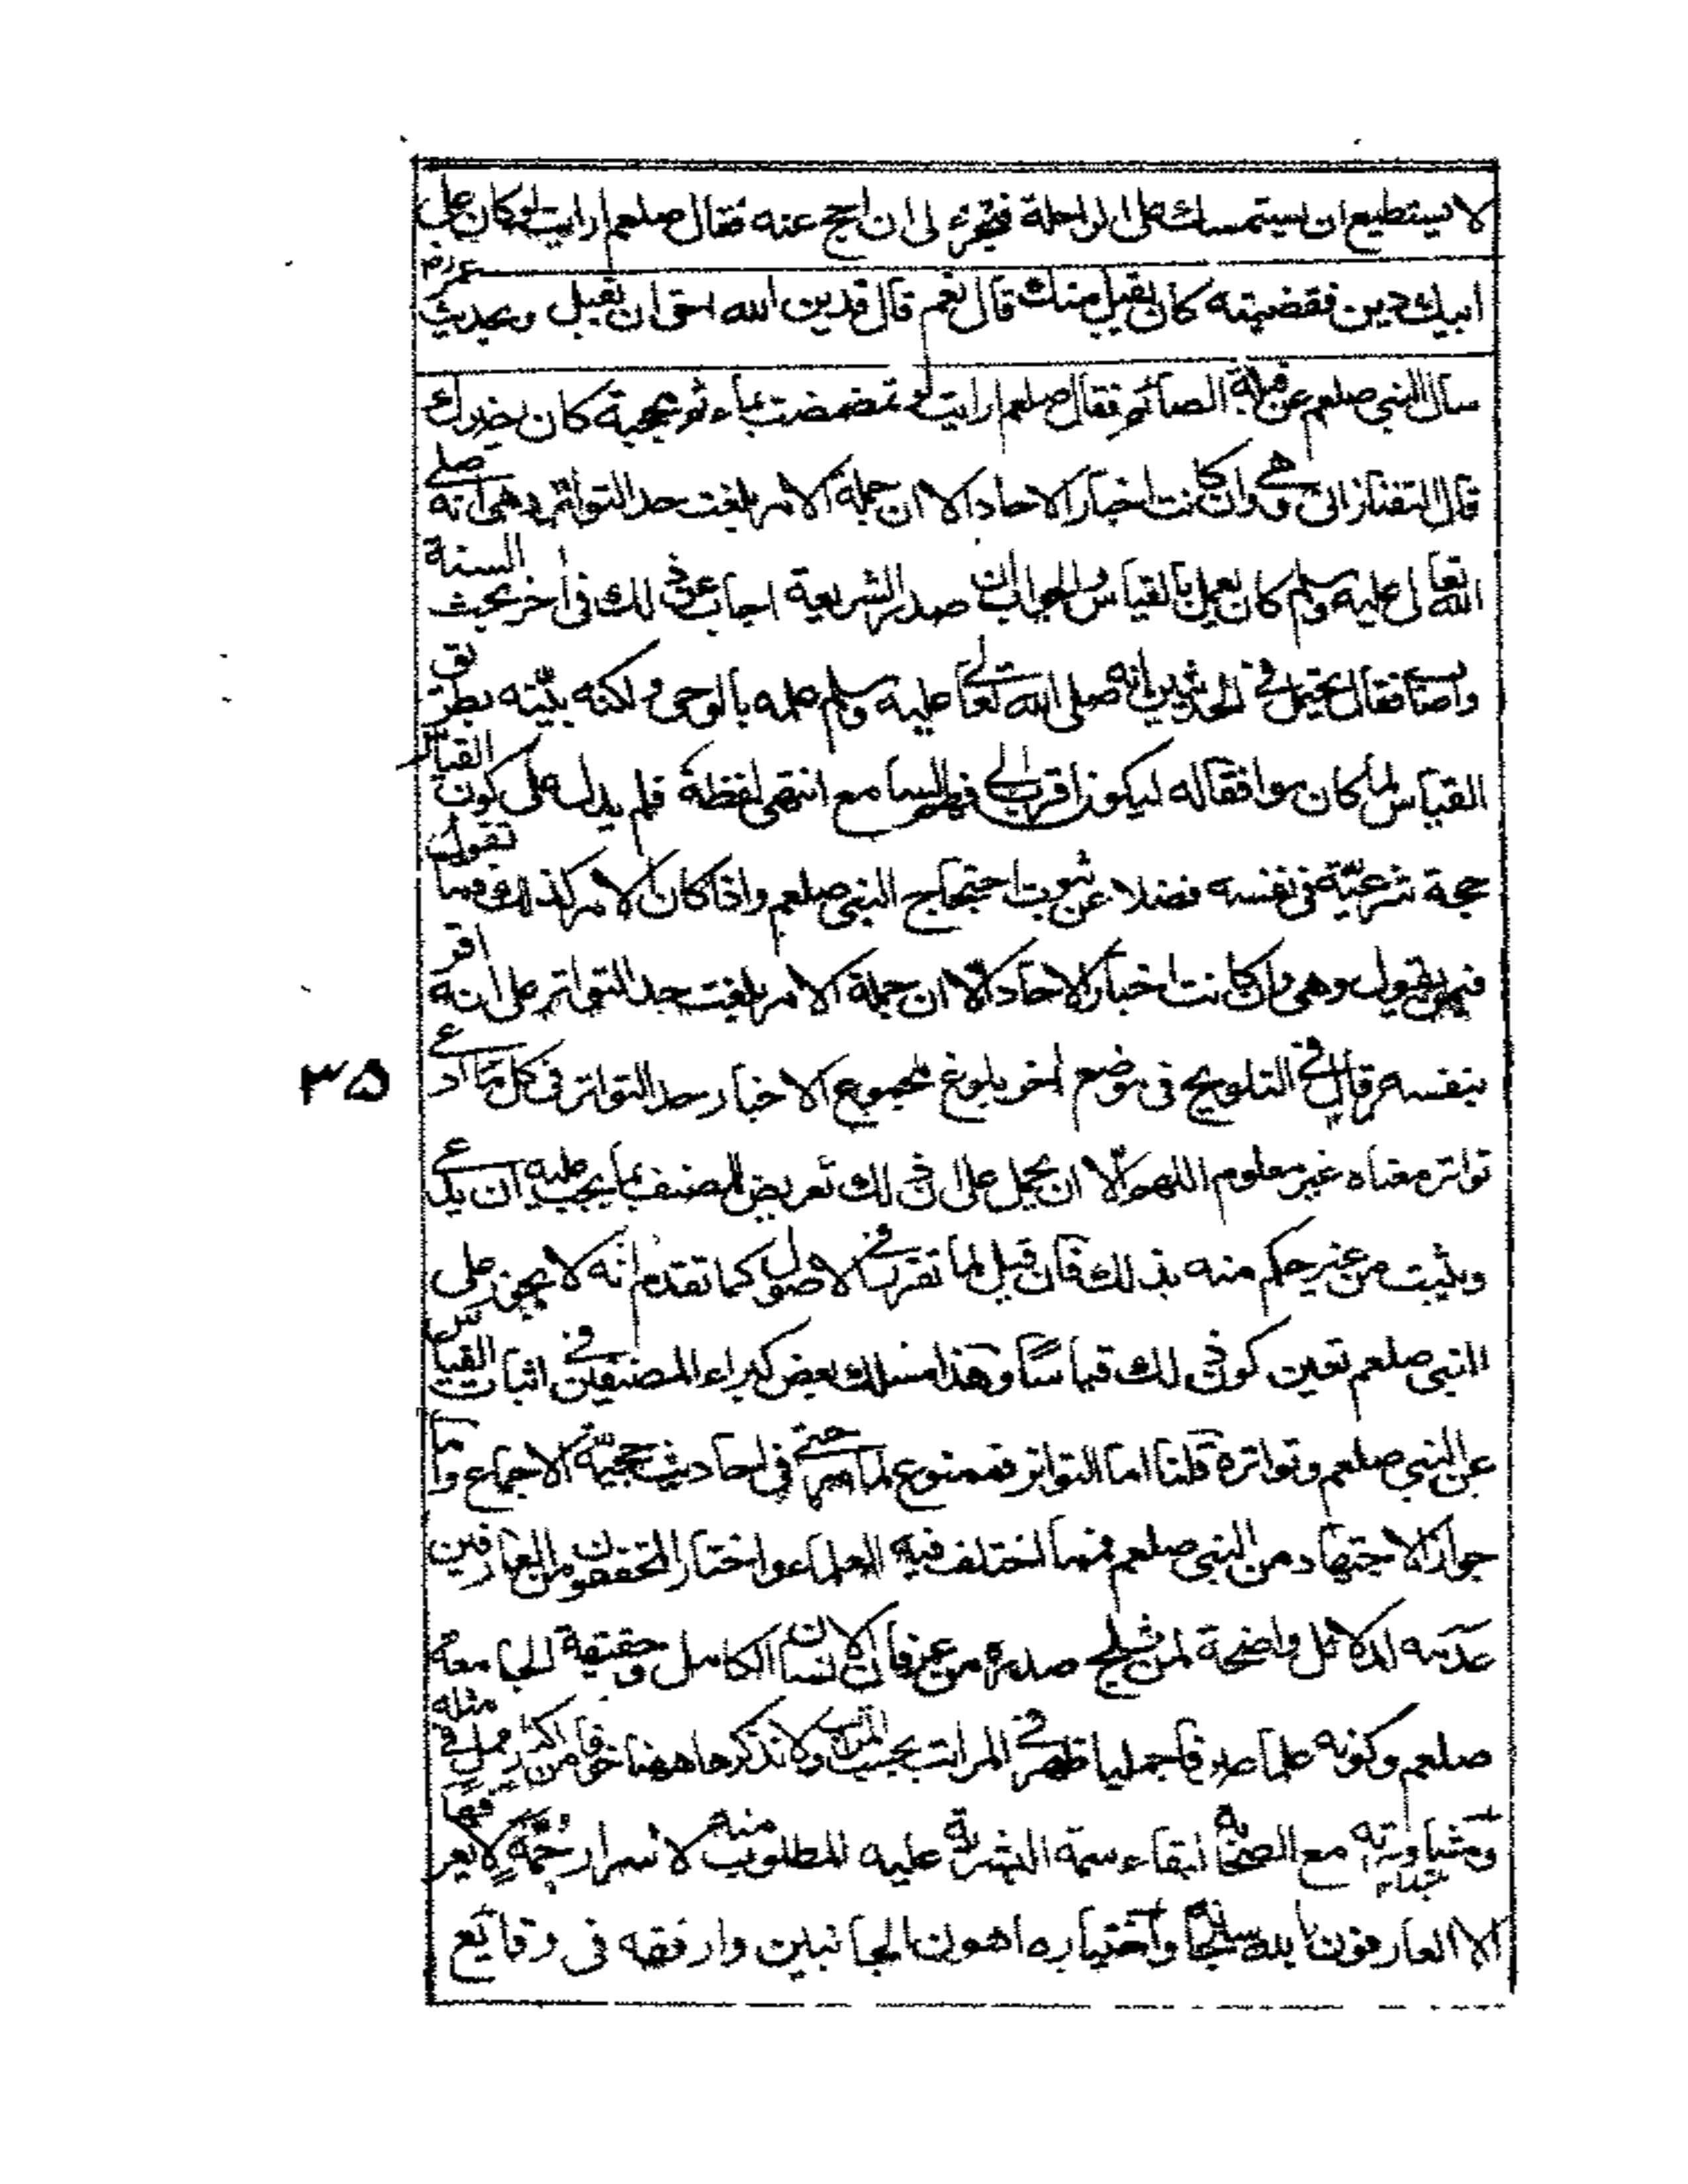 لا يستطيع ان يستمسك على الراحلة فيجزء لى ان احج عنه فقال صلعم ارايت لو كان على
ابيك دين فقضيته كان يقبل منك قال نعم قال فدين الله احق ان تقبل وبحديث عمر رض
سأل النبى صلعم عن قبلة الصائم فقال صلعم ارايت لو تمضمضت بماء ثم مججته كان يضرك
قال التفتازانى وهى وان كانت اخبار الاحاد الا ان جملة الامر بلغت حد التواتر وهى انه صلى
الله تعالى عليه وسلم كان يعمل بالقياس والجواب ان صدر الشريعة اجاب عن ذلك فى اخر بحث السنة
فقال يحتمل فى الحديثين انه صلى الله تعالى عليه وسلم علمه بالوحى ولكنه بينه بطريق
القياس لما كان موافقا له ليكون اقرب الى فهم السامع انتهى لفظة فلم يدل على كون القياس
حجة شرعية فى نفسه فضلا عن ثبوت احتجاج النبى صلعم واذا كان الامر كذلك فما تقول
فيمن يقول وهى وان كانت اخبار الاحاد الا ان جملة الامر بلغت حد التواتر على انه اقر
بنفسه مر قال فى التلويح فى موضع اخر بلوغ مجموع الاخبار حد التواتر فى كل ما ادعى
تواتر معناه غير معلوم اللهم الا ان يحمل على ان فى ذلك تعريض للمصنف بما يجب عليه ان يدعى
ويثبت من غير حكم منه بذلك فان قيل لما تقرر فى الاصول كما تقدم انه لا يجوز على
النبى صلعم تعين كون ذلك قياسا وهذا مسلك بعض كبراء المصنفين فى اثبات القياس
عن النبى صلعم وتواتره قلنا اما التواتر فممنوع لما مر حتى فى احاديث حجية الاجماع واما
جواز الاجتهاد من النبى صلعم فمما اختلف فيه العلماء واختار المحققون من العارفين
عدمه لدلائل واضحة لمن ثلج صدره من عرفان الانسان الكامل وحقيقة الجامعة
صلعم وكونه علما صرفا جمليا ظهر فى المراتب بحسب المراتب ولا نذكرها ههنا خوفا من اكثار مثله
ومشاورته مع الصحابة لبقاء سمة البشرية عليه المطلوب منه لاسرار جمة لا يعرفها
الا العارفون بالله سبحانه واختياره اهون الجانبين وارفقه فى وقايع
٣٥